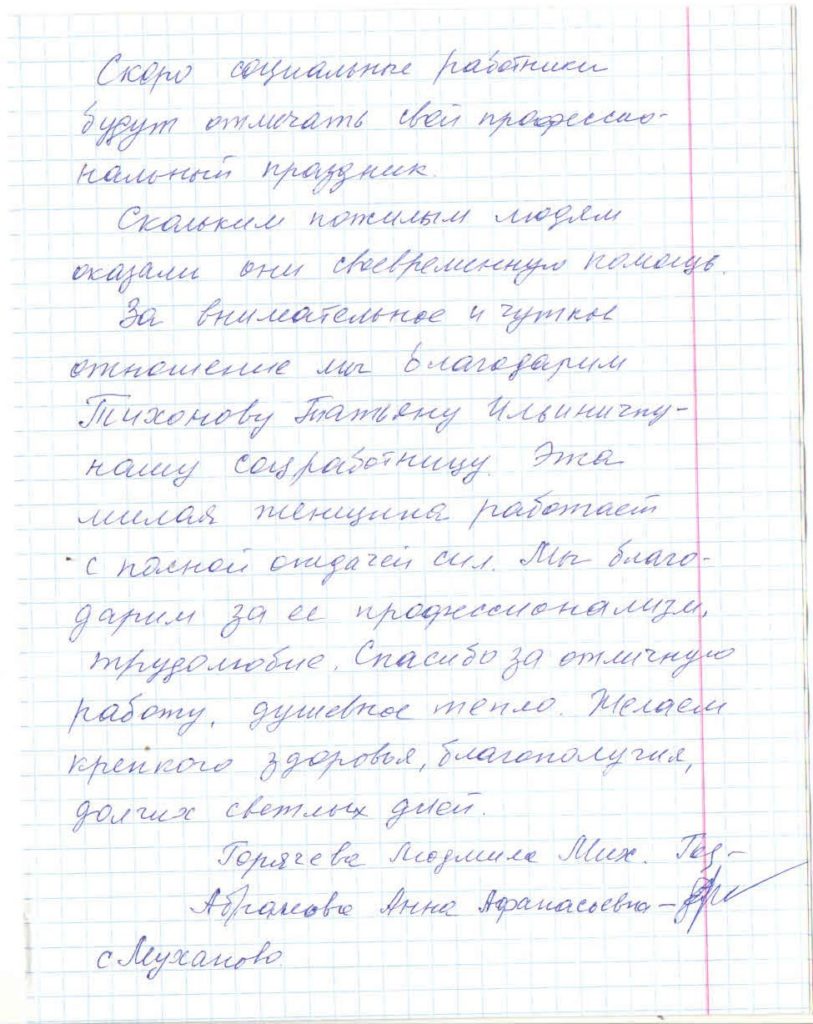 Скоро социальные работники
будут отмечать свой профессио-
нальный праздник.
Скольким пожилым людям
оказали они своевременную помощь.
За внимательное и чуткое
отношение мы благодарим
Тихонову Татьяну Ильиничну -
нашу соцработницу. Эта
милая женщина работает
с полной отдачей сил. Мы благо-
дарим за ее профессионализм,
трудолюбие. Спасибо за отличную
работу, душевное тепло. Желаем
крепкого здоровья, благополучия,
долгих светлых дней.
Горячева Людмила Мих.
Абрамова Анна Афанасьевна -
с Муханово